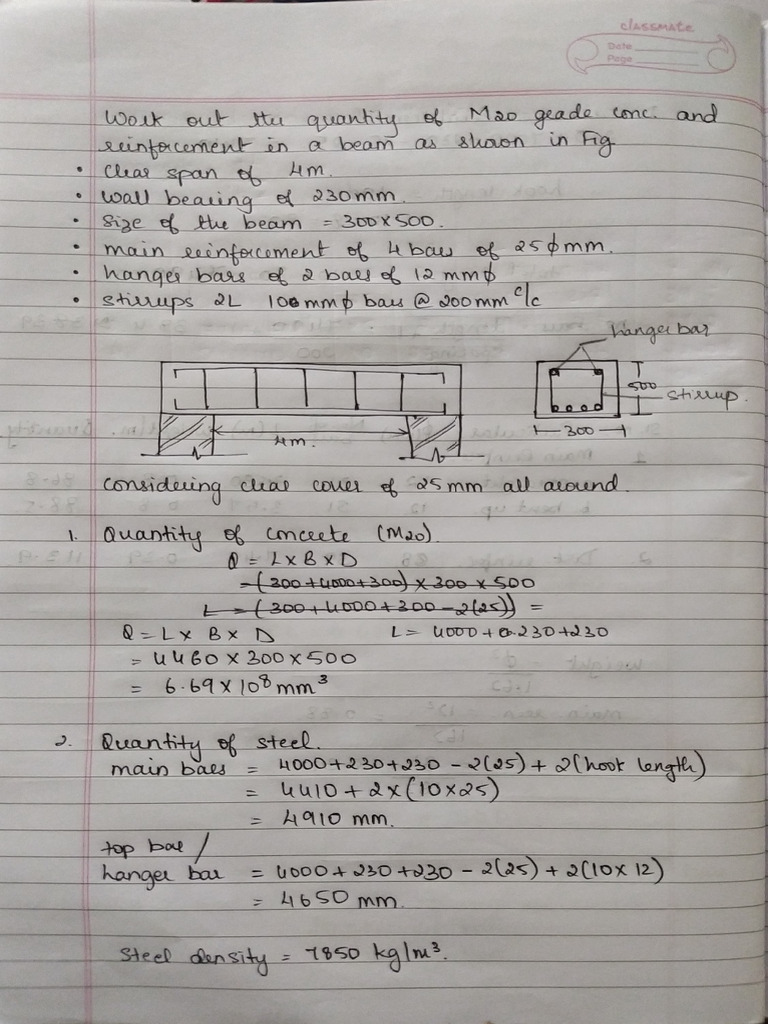 classmate
Date
Page
Work out the quantity of M20 grade conc. and
reinforcement in a beam as shown in Fig
• Clear span of 4m.
• wall bearing of 230mm.
• Size of the beam = 300x500.
• main reinforcement of 4 bars of 25 ϕ mm.
• hanger bars of 2 bars of 12 mm ϕ
• stirrups 2L 10 mm ϕ bars @ 200mm c/c
hanger bar
500
stirrup.
300
4m.
Considering clear cover of 25mm all around.
1. Quantity of concrete (M20).
Q = L x B x D
= (300+4000+300) x 300 x 500
L = (300+4000+300-2(25)) =
Q = L x B x D L = 4000+230+230
= 4460 x 300 x 500
= 6.69 x 10⁸ mm³
2. Quantity of steel.
main bars = 4000+230+230-2(25) + 2(hook length)
= 4410 + 2x(10x25)
= 4910 mm.
top bar /
hanger bar = 4000+230+230-2(25)+2(10x12)
= 4650 mm.
Steel density = 7850 kg/m³.